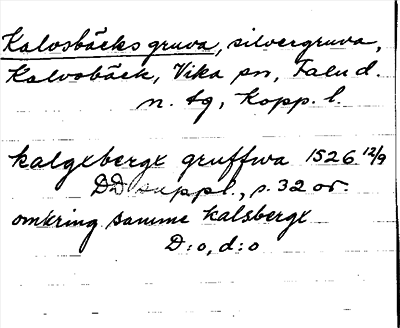 Kalvsbäcks gruva, silvergruva,
Kalvsbäck, Vika sn, Falu d.
n. tg, Kopp. l.
kalgxbergx gruffwa 1526 12/9
DD suppl., s. 32 or
omkring samme kalsbergx
D:o, d:o